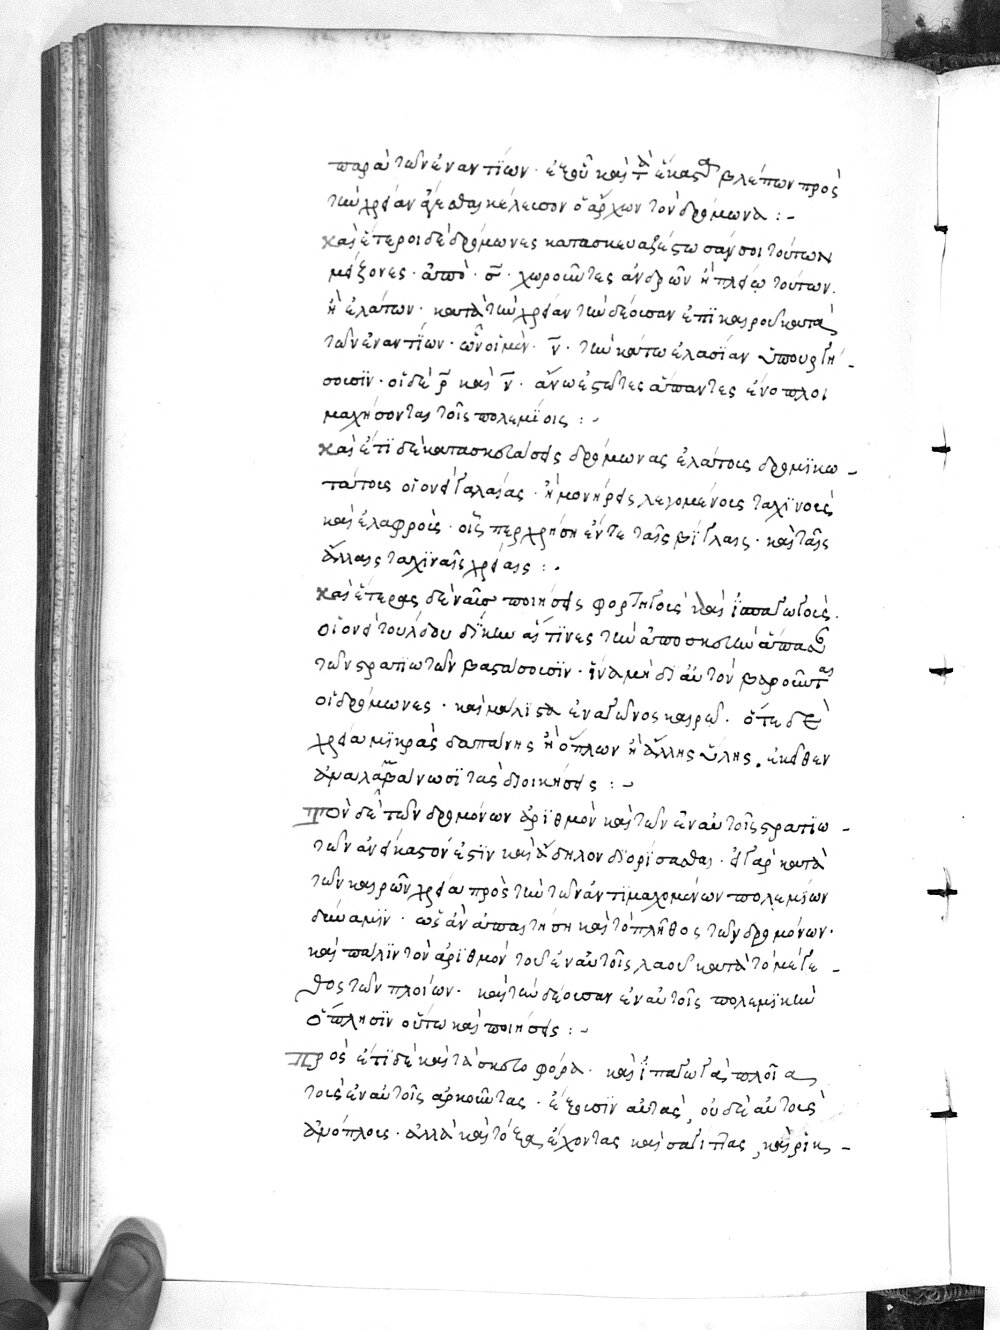 παρὰ τῶν ἐναντίων· ἐξ οὗ καὶ τὰ ἕκαστα βλέπων πρὸς
τὴν χρείαν ἄγεσθαι κέλευσον ὁ ἄρχων τὸν δρόμωνα :-
καὶ ἕτεροι δὲ δρόμωνες κατασκευαζέσθωσάν σοι τούτων
μείζονες· ἀπὸ· σ̅· χωροῦντες ἀνδρῶν ἢ πλείω τούτων.
ἢ ἐλάττων· κατὰ τὴν χρείαν τὴν δέουσαν ἐπὶ καιροῦ κατὰ
τῶν ἐναντίων· ὧν οἱ μὲν· ν̅· τὴν κάτω ἐλασίαν ὑπουργή-
σουσιν· οἱ δὲ ρ̅ καὶ ν̅· ἄνω ἑστῶτες ἅπαντες ἔνοπλοι
μαχήσονται τοῖς πολεμίοις :-
καὶ ἔτι δὲ κατασκευάσεις δρόμωνας ἐλάττους δρομικω-
τάτους οἱονεὶ γαλαίας· ἢ μονήρεις λεγομένους ταχινοὺς
καὶ ἐλαφροὺς· οἷς περ χρήσῃ ἔν τε ταῖς βίγλαις· καὶ ταῖς
ἄλλαις ταχιναῖς χρείαις :·
καὶ ἑτέρας δὲ ναῦς ποιήσεις φορτηγοὺς καὶ ἱππαγωγοὺς.
οἱονεὶ τούλδου δίκην αἵτινες τὴν ἀποσκευὴν ἅπασαν
τῶν στρατιωτῶν βαστάσουσιν· ἵνα μὴ δι αὐτὸν βαροῦνται
οἱ δρόμωνες· καὶ μάλιστα ἐν ἀγῶνος καιρῷ· ὅτε δὲ
χρεία μικρᾶς δαπάνης ἢ ὅπλων ἢ ἄλλης ὕλης. ἐκεῖθεν
ἀναλαμβάνωσι τὰς διοικήσεις :-
Τὸν δὲ τῶν δρομόνων ἀριθμὸν καὶ τῶν ἐν αὐτοῖς στρατιω-
τῶν ἀνείκαστόν ἐστιν καὶ ἄδηλον διορίσασθαι· εἰ γὰρ κατὰ
τῶν καιρῶν χρεία πρὸς τὴν τῶν ἀντιμαχομένων πολεμίων
δύναμιν· ὡς ἂν ἀπαιτήσῃ καὶ τὸ πλῆθος τῶν δρομόνων·
καὶ πάλιν τὸν ἀριθμὸν τοῦ ἐν αὐτοῖς λαοῦ κατὰ τὸ μέγε-
θος τῶν πλοίων· καὶ τὴν δέουσαν ἐν αὐτοῖς πολεμικὴν
ὅπλησιν οὕτω καὶ ποιήσεις :-
Πρὸς ἔτι δὲ καὶ τὰ σκευοφόρα· καὶ ἱππαγωγὰ πλοῖα
τοὺς ἐν αὐτοῖς ἀρκοῦντας· ἔχουσιν αὐτὰς, οὐδὲ αὐτοὺς
ἀνόπλους· ἀλλὰ καὶ τόξα ἔχοντας καὶ σαγίττας, καὶ ῥικ-